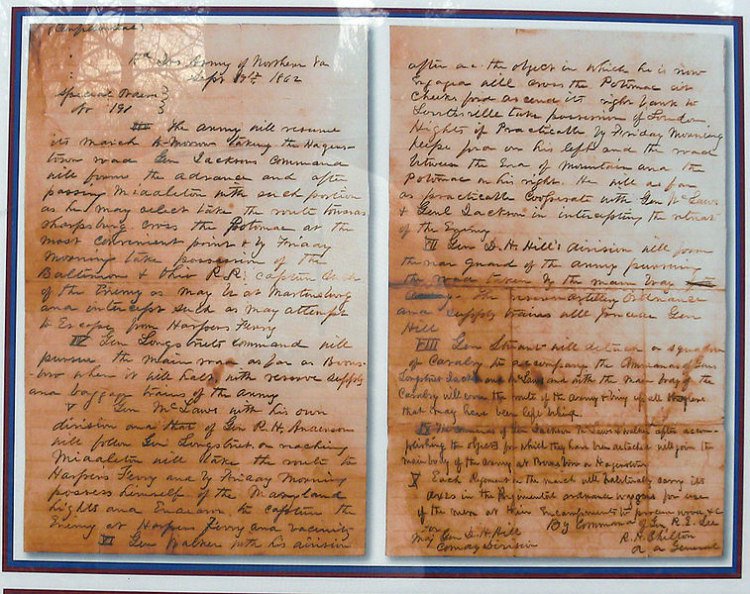 (Confidential)
Hd Qrs Army of Northern Va
Sept 9th 1862
Special Orders
No 191
III The Army will resume
its march to-morrow taking the Hagers-
town road. Gen Jacksons Command
will form the advance and after
passing Middleton with such portion
as he may select take the route towards
Sharpsburg cross the Potomac at the
most convenient point & by Friday
morning take possession of the
Baltimore & Ohio R.R. capture such
of the Enemy as may be at Martinsburg
and intercept such as may attempt
to Escape from Harpers Ferry
IV Gen Longstreets command will
pursue the main road as far as Boons-
boro where it will halt, with reserve supply
and baggage trains of the army
V Gen McLaws with his own
division and that of Gen R. H. Anderson
will follow Gen Longstreet on reaching
Middleton will take the route to
Harpers Ferry and by Friday Morning
possess himself of the Maryland
hights and Endeavor to capture the
Enemy at Harpers Ferry and vicinity
VI Gen Walker with his division
after the object in which he is now
Engaged will cross the Potomac at
Cheeks ford ascend its right bank to
Lovettsville take possession of Loudon
Hights if Practicably by Friday Morning
Keyes ford on his left and the road
between the End of Mountain and the
Potomac on his right. He will as far
as practicable Cooperate with Gen McLaws
& Genl Jackson in intercepting the retreat
of the Enemy
VII Gen D. H. Hill's division will form
the rear guard of the army pursuing
the road taken by the main body
The reserve artillery Ordnance
and supply trains will precede Gen
Hill
VIII Gen Stuart will detach a squadron
of Cavalry to accompany the Commands of Gens
Longstreet Jackson and McLaws and with the main body of the
Cavalry will cover the route of the army & bring up all stragglers
that may have been left behind
IX The commands of Gen Jackson McLaws & Walker after accom-
plishing the objects for which they have been detached will join the
main body of the army at Boonsboro or Hagerstown
X Each Regiment on the march will habitually carry its
axes in the Regimental ordnance wagons for use
of the men at their Encampments to procure wood &c
By Command of Gen R. E. Lee
R. H. Chilton
A. A General
For
Maj Gen D. H. Hill
Comdg Division